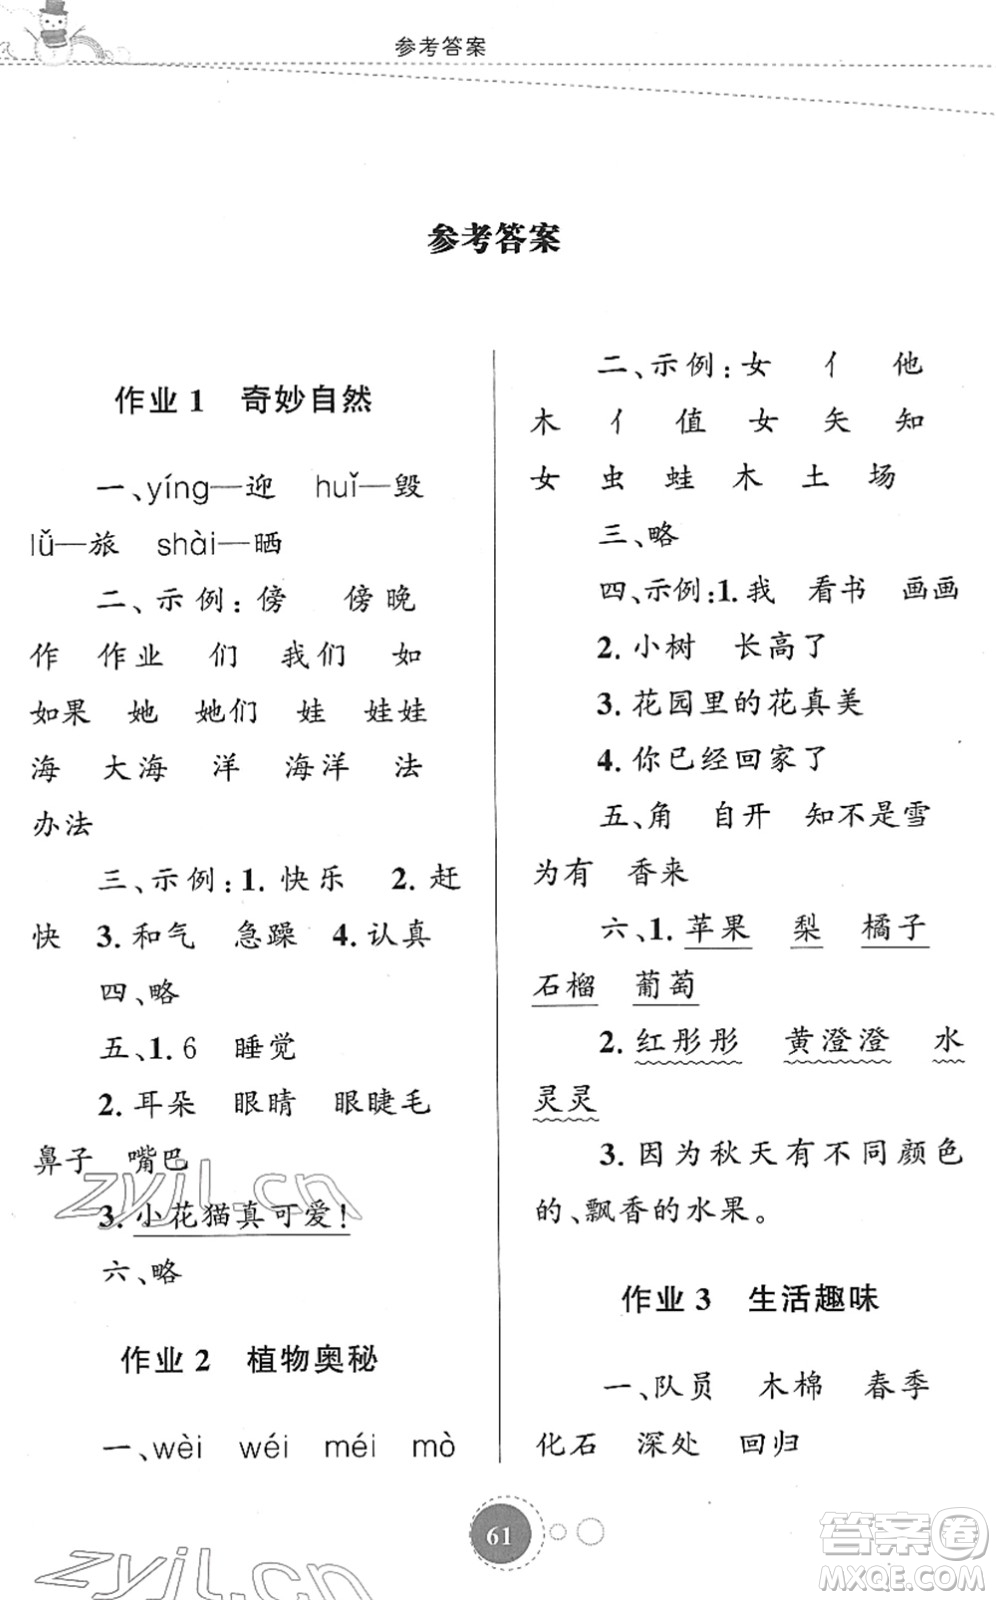 参考答案
参考答案
作业1 奇妙自然
一、yíng—迎 huǐ—毁
lǚ—旅 shài—晒
二、示例：傍 傍晚
作 作业 们 我们 如
如果 她 她们 娃 娃娃
海 大海 洋 海洋 法
办法
三、示例：1. 快乐 2. 赶
快 3. 和气 急躁 4. 认真
四、略
五、1. 6 睡觉
2. 耳朵 眼睛 眼睫毛
鼻子 嘴巴
3. 小花猫真可爱！
六、略
作业2 植物奥秘
一、wèi wéi méi mò
二、示例：女 亻 他
木 亻 值 女 矢 知
女 虫 蛙 木 土 场
三、略
四、示例：1. 我 看书 画画
2. 小树 长高了
3. 花园里的花真美
4. 你已经回家了
五、角 自开 知不是雪
为有 香来
六、1. 苹果 梨 橘子
石榴 葡萄
2. 红彤彤 黄澄澄 水
灵灵
3. 因为秋天有不同颜色
的、飘香的水果。
作业3 生活趣味
一、队员 木棉 春季
化石 深处 回归
61
zyjl.cn
zyjl.cn
答案圈
MXQE.COM